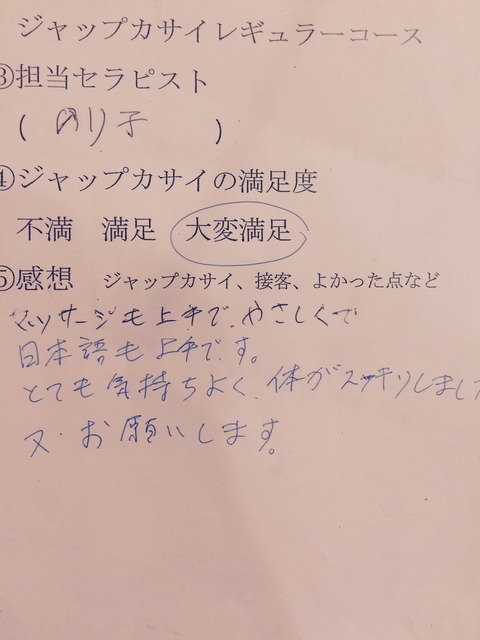 ジャップカサイレギュラーコース
③担当セラピスト
( のり子 )
④ジャップカサイの満足度
不満 満足 大変満足
⑤感想 ジャップカサイ、接客、よかった点など
マッサージも上手で、やさしくて
日本語も上手です。
とても気持ちよく、体がスッキリしまし
又、お願いします。